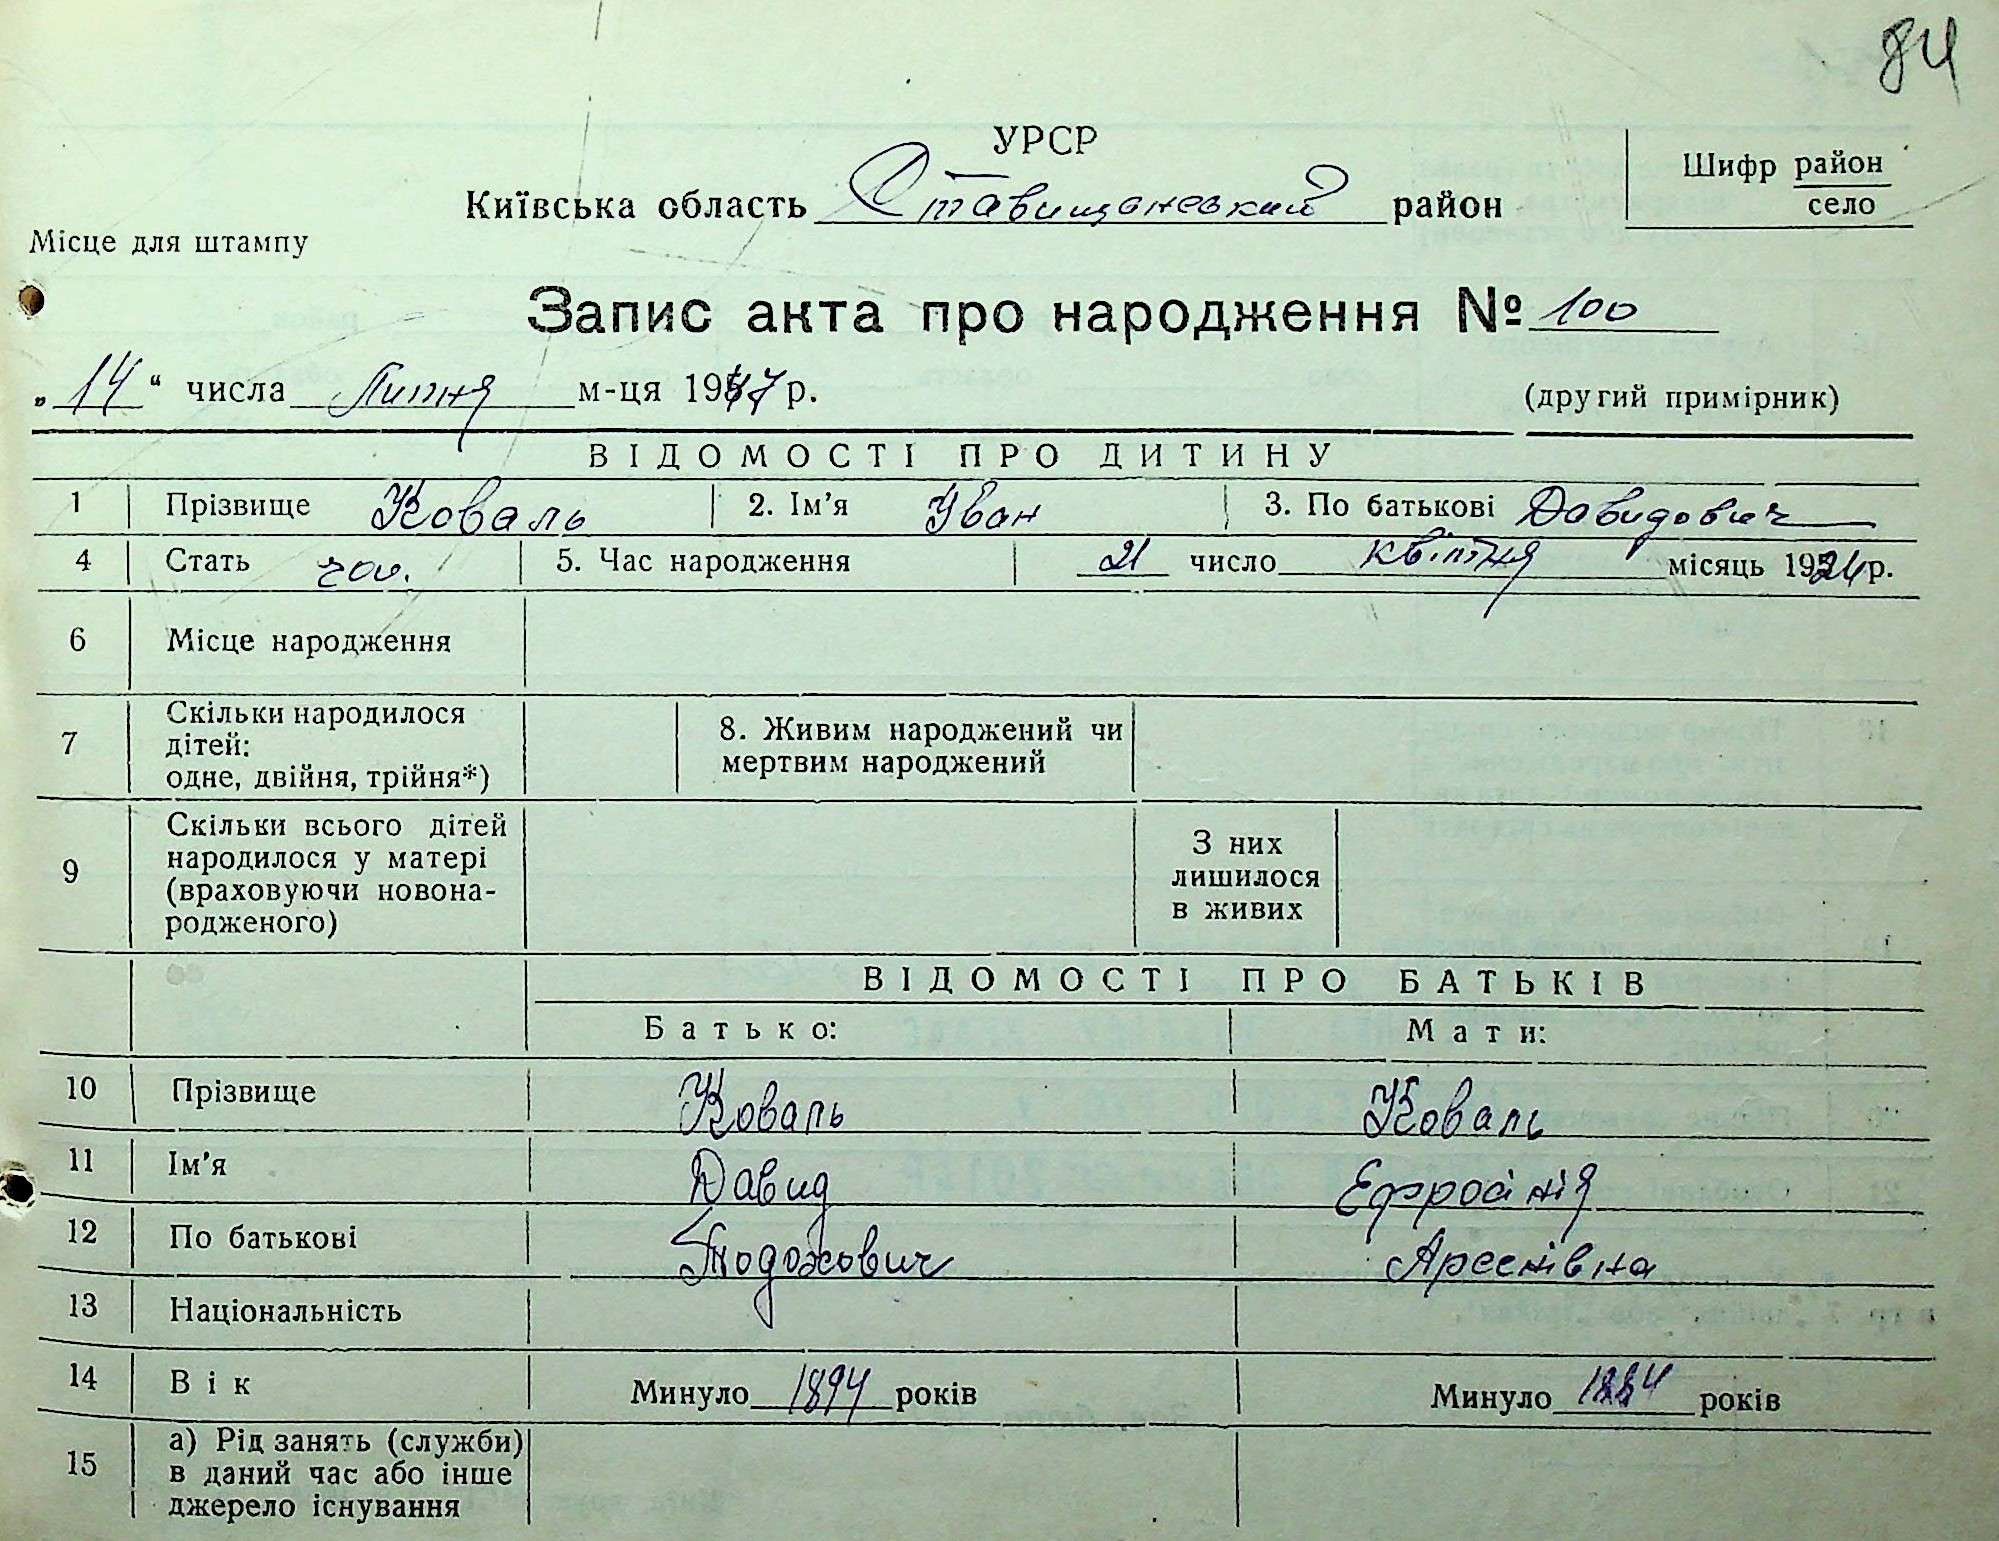 84
УРСР
Київська область Ставищанський район
Шифр район
село
Місце для штампу
Запис акта про народження № 100
„14“ числа Липня м-ця 1947 р.
(другий примірник)
ВІДОМОСТІ ПРО ДИТИНУ
1 Прізвище Коваль 2. Ім'я Іван 3. По батькові Давидович
4 Стать чол. 5. Час народження 21 число квітня місяць 1924 р.
6 Місце народження
7 Скільки народилося дітей: одне, двійня, трійня*) 8. Живим народжений чи мертвим народжений
9 Скільки всього дітей народилося у матері (враховуючи новонародженого) З них лишилося в живих
ВІДОМОСТІ ПРО БАТЬКІВ
Батько: Мати:
10 Прізвище Коваль Коваль
11 Ім'я Давид Ефросінія
12 По батькові Тодохович Арсенівна
13 Національність
14 Вік Минуло 1894 років Минуло 1884 років
15 а) Рід занять (служби)
в даний час або інше
джерело існування